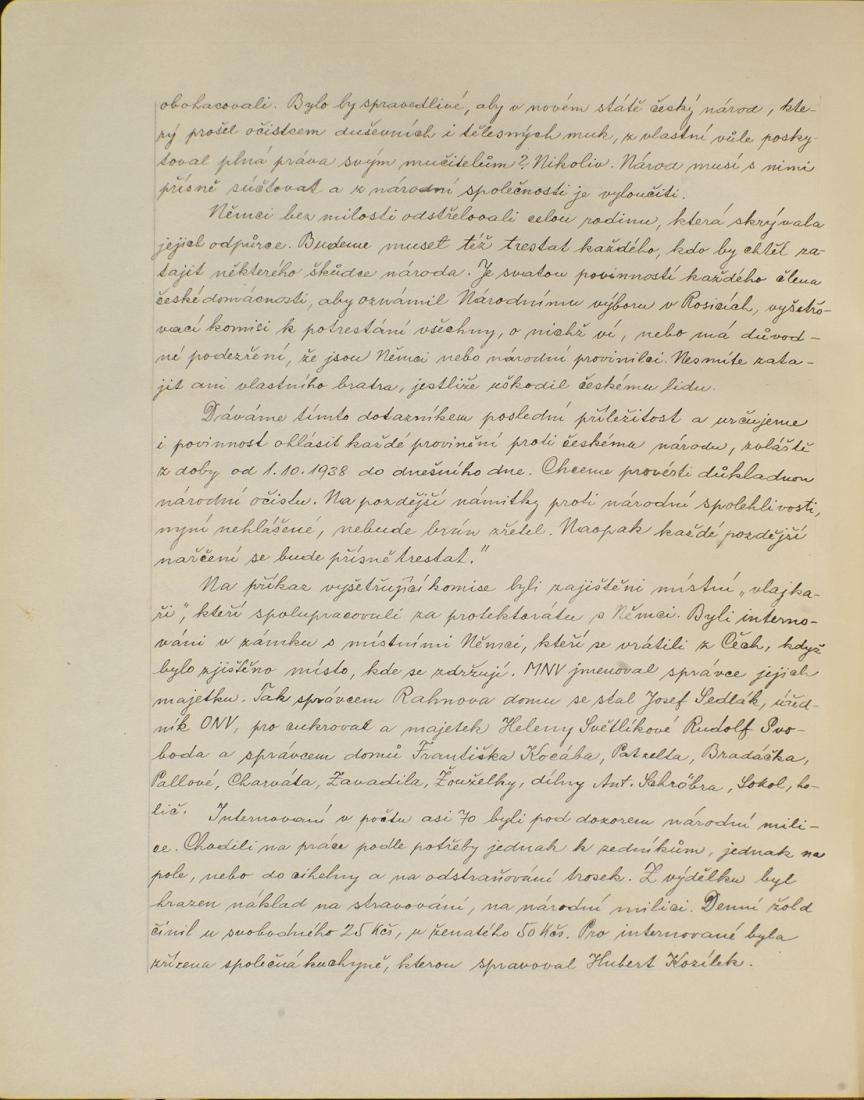 obohacovali. Bylo by spravedlivé, aby v novém státě český národ, kte-
rý prošel očistcem duševních i tělesných muk, z vlastní vůle posky-
toval plná práva svým mučitelům? Nikoliv. Národ musí s nimi
přísně súčtovat a z národní společnosti je vyloučiti.
Němci bez milosti odstřelovali celou rodinu, která skrývala
jejich odpůrce. Budeme muset též trestat každého, kdo by chtěl za-
tajit některého škůdce národa. Je svatou povinností každého člena
české domácnosti, aby oznámil Národnímu výboru v Rosicích, vyšetřo-
vací komisi k potrestání všechny, o nichž ví, nebo má důvod-
né podezření, že jsou Němci nebo národní provinilci. Nesmíte zata-
jit ani vlastního bratra, jestliže uškodil českému lidu.
Dáváme tímto dotazníkem poslední příležitost a určujeme
i povinnost ohlásit každé provinění proti českému národu, zvláště
z doby od 1.10.1938 do dnešního dne. Chceme provésti důkladnou
národní očistu. Na pozdější námitky proti národní spolehlivosti,
nyní nehlášené, nebude brán zřetel. Naopak každé pozdější
nařčení se bude přísně trestat."
Na příkaz vyšetřující komise byli zajištěni místní „vlajka-
ři", kteří spolupracovali za protektorátu s Němci. Byli interno-
váni v zámku s místními Němci, kteří se vrátili z Čech, když
bylo zjištěno místo, kde se zdržují. MNV jmenoval správce jejich
majetku. Tak správcem Rahnova domu se stal Josef Sedlák, úřed-
ník ONV, pro cukrovar a majetek Heleny Světlíkové Rudolf Svo-
boda a správcem domů Františka Kocába, Patzelta, Bradáčka,
Pallové, Charváta, Zavadila, Žouželky, dílny Ant. Schröbra, Sokol, ho-
lič.
Internovaní v počtu asi 70 byli pod dozorem národní mili-
ce. Chodili na práce podle potřeby jednak k zedníkům, jednak na
pole, nebo do cihelny a na odstraňování trosek. Z výdělku byl
hrazen náklad na stravování, na národní milici. Denní žold
činil u svobodného 25 Kčs, u ženatého 50 Kčs. Pro internované byla
zřízena společná kuchyně, kterou spravoval Hubert Kozílek.